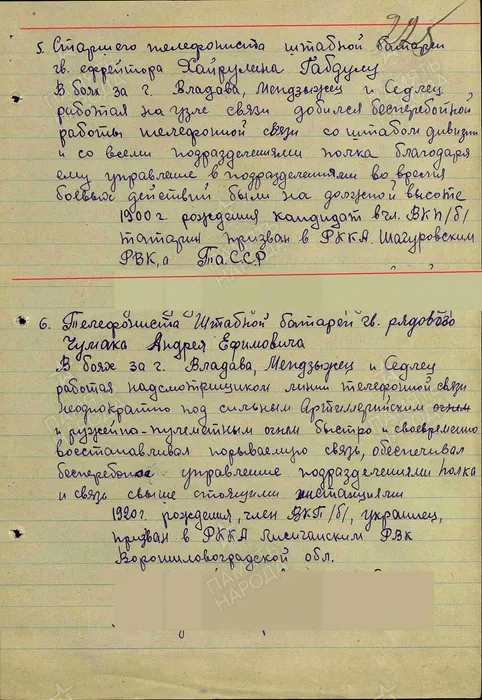 225
5. Старшего телефониста штабной батареи
гв. ефрейтора Хайрулина Габдулу
В боях за г. Владава, Мендзыжец и Седлец
работая на узле связи добился бесперебойной
работы телефонной связи со штабом дивизии
и со всеми подразделениями полка благодаря
ему управление в подразделениями во время
боевых действий были на должной высоте
1900 г. рождения кандидат в чл. ВКП/б/
татарин призван в РККА. Шагуровским
РВК, а ТаССР
6. Телефониста Штабной батареи гв. рядового
Чумака Андрея Ефимовича
В боях за г. Владава, Мендзыжец и Седлец
работая надсмотрщиком линии телефонной связи
неоднократно под сильным Артиллерийским огнем
и ружейно-пулеметным огнем быстро и своевременно
восстанавливал порываемую связь, обеспечивал
бесперебойное управление подразделениями полка
и связь свыше стоящими инстанциями
1920 г. рождения, член ВКП/б/, украинец,
призван в РККА Лисичанским РВК
Ворошиловоградской обл.